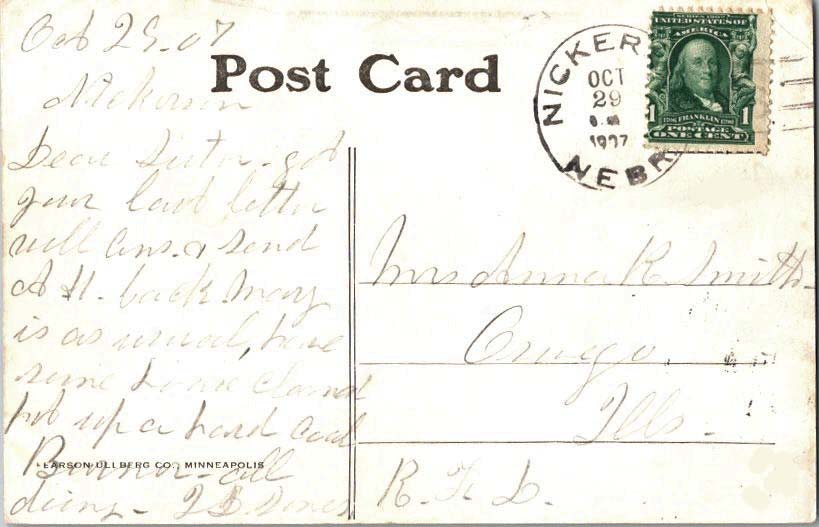 Oct 29.07
Post Card
Nickerson
Dear Sister - got
your last letter
will ans. & send
back Mary
is as usual, have
some house cleaned
put up a hard coal
Burner - all
doing -
PEARSON ULLBERG CO., MINNEAPOLIS
NICKER
OCT
29
1907
NEBR
SERIES 1902
UNITED STATES OF
AMERICA
1 FRANKLIN 1
POSTAGE
ONE CENT
Mrs Anna R. Smith
Oswego
Ills.
R. F. D.